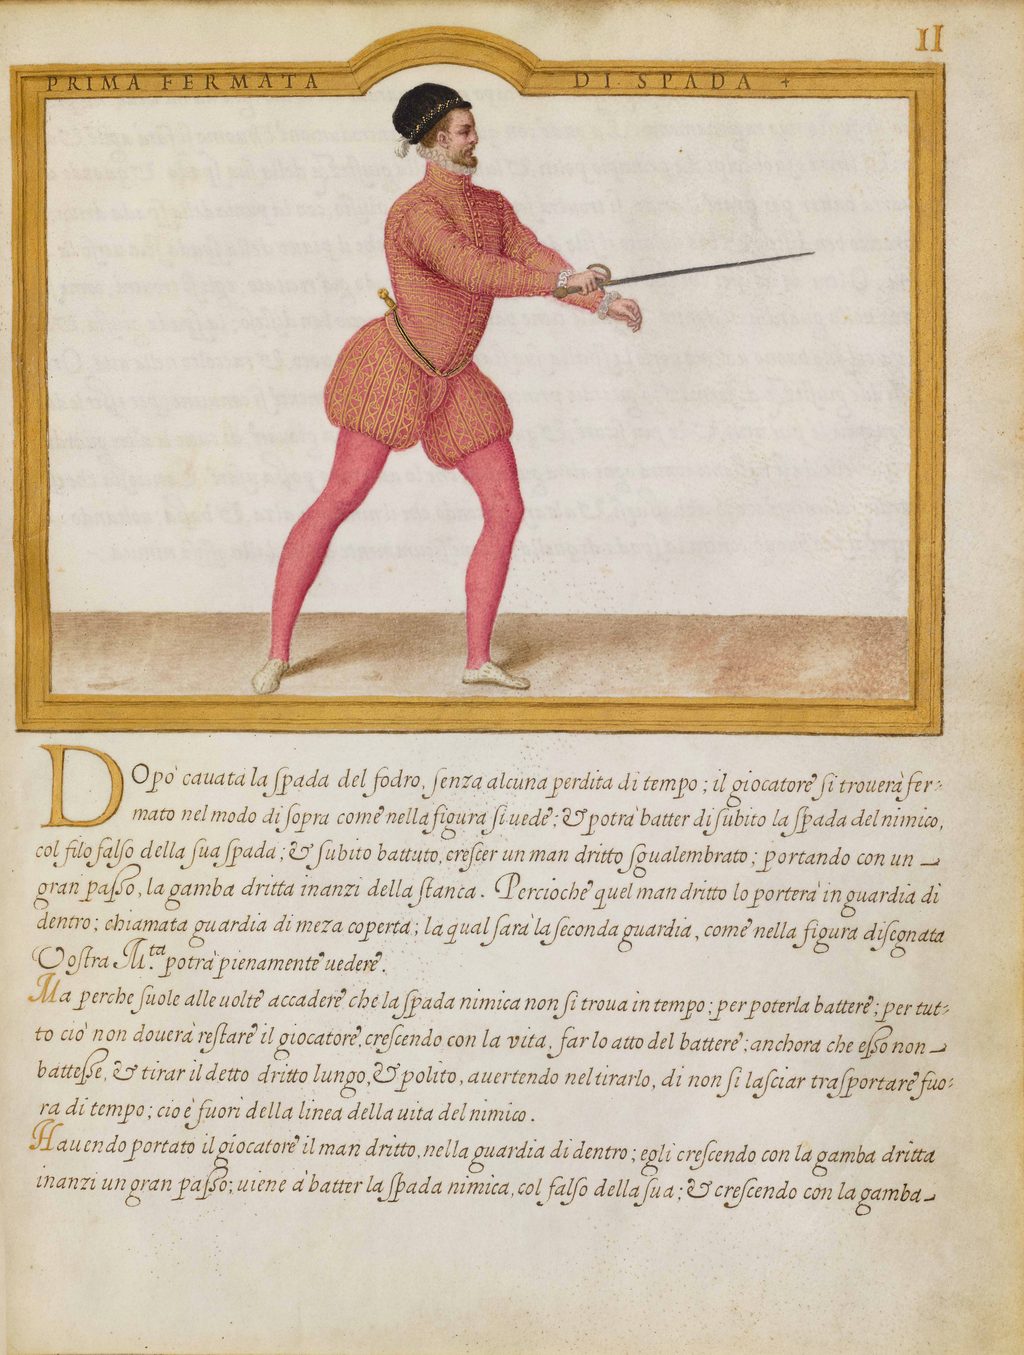 11
PRIMA FERMATA DI SPADA +
DOpò cauata la spada del fodro, senza alcuna perdita di tempo; il giocatore si trouerà fer=
mato nel modo di sopra come nella figura si uede; & potrà batter di subito la spada del nimico,
col filo falso della sua spada; & subito battuto, crescer un man dritto sgualembrato; portando con un
gran passo, la gamba dritta inanzi della stanca. Percioche quel man dritto lo porterà in guardia di
dentro; chiamata guardia di meza coperta; la qual sarà la seconda guardia, come nella figura disegnata
Vostra M.ta potrà pienamente uedere.
Ma perche suole alle uolte accadere che la spada nimica non si troua in tempo; per poterla battere; per tut=
to ciò non douerà restare il giocatore, crescendo con la vita, far lo atto del battere; anchora che esso non
battesse, & tirar il detto dritto lungo, & polito, auertendo nel tirarlo, di non si lasciar trasportare fuo=
ra di tempo; cio è fuori della linea della uita del nimico.
Hauendo portato il giocatore il man dritto, nella guardia di dentro; egli crescendo con la gamba dritta
inanzi un gran passo; uiene à batter la spada nimica, col falso della sua; & crescendo con la gamba